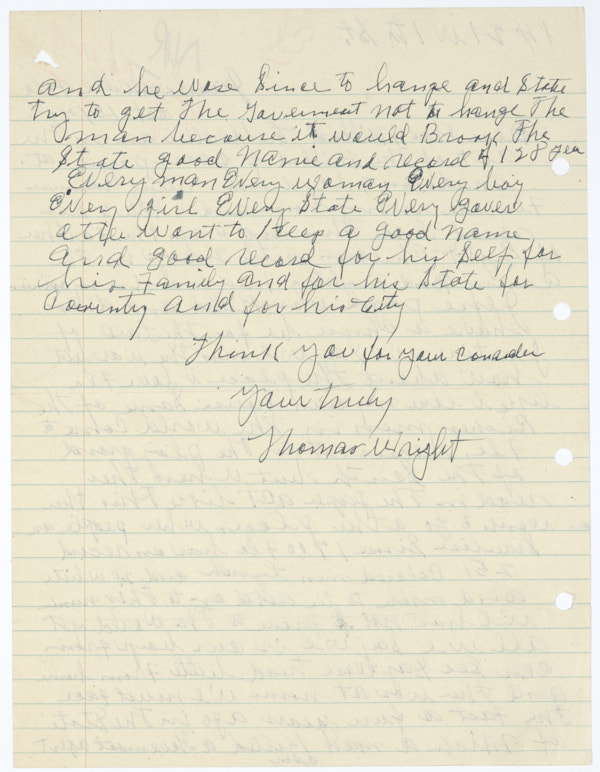 and he wose Since to hange and State
try to get The Goverment not to hange The
man because it would Brook The
State good Name and record of 128 yea
Every man Every woman Every boy
Every girl Every State Every Gover
want to Keep a good name
And good record for his Self for
his Family and for his State for
Country and for his City
Think you for your consider
Your truly
Thomas Wright